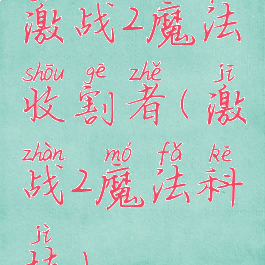 激战2魔法
shōu gē zhě jī
收割者(激
zhàn mó fǎ kē
战2魔法科
jì
技)